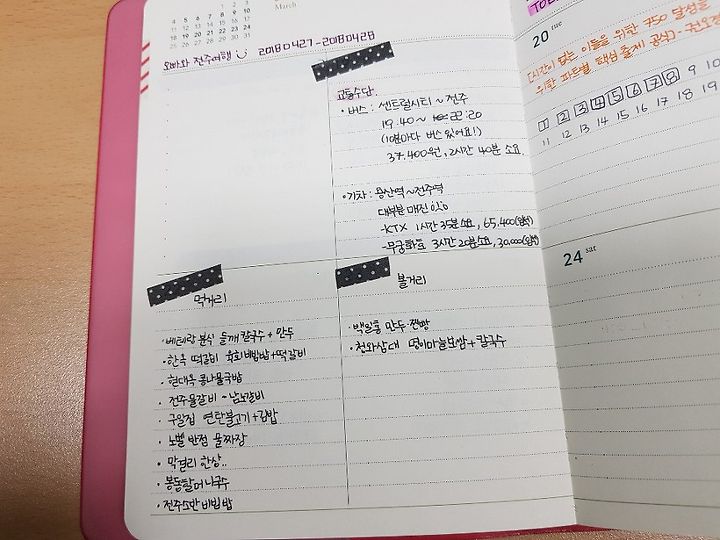 March
1 2 3
4 5 6 7 8 9 10
11 12 13 14 15 16 17
18 19 20 21 22 23 24
25 26 27 28 29 30 31
오빠와 전주여행 20180427-20180428
교통수단.
• 버스 : 센트럴시티 ~ 전주
19:40 ~ 22:20
(10분마다 버스 있어요!)
37.400원, 2시간 40분 소요.
• 기차 : 용산역 ~ 전주역
대부분 매진
-KTX 1시간 35분 소요, 65,400(왕복)
-무궁화호 3시간 20분 소요, 30,000(왕복)
먹거리
• 베테랑 분식 들깨 칼국수 + 만두
• 한옥 떡갈비 육회비빔밥+떡갈비
• 현대옥 콩나물국밥
• 전주물갈비 - 남노갈비
• 구일집 연탄불고기 + 김밥
• 노벨 반점 물짜장
• 막걸리 한상..
• 봉동할머니국수
• 전주소반 비빔밥
볼거리
• 백일홍 만두 찐빵
• 보쌈 + 칼국수
20 tue
[시간이 없는 이들을 위한 750 달성을
위한 파트별 핵심 출제 공식] -
1 2 3 4 5 6 7 8 9 10
11 12 13 14 15 16 17 18 19
24 sat